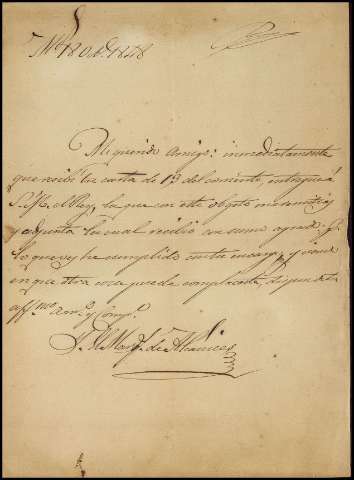 Mi querido Amigo: inmediatamente
que recibi tu carta de 13 del corriente, entregué á
S. M. el Rey, la que con este objeto me
y adjunta la cual recibió con sumo agrado
lo que y he cumplido con tu encargo, y
en que otra cosa puede complacerte, dispon de tu
aff.mo am.º y Comp.º
El Marq.s de Alcañices